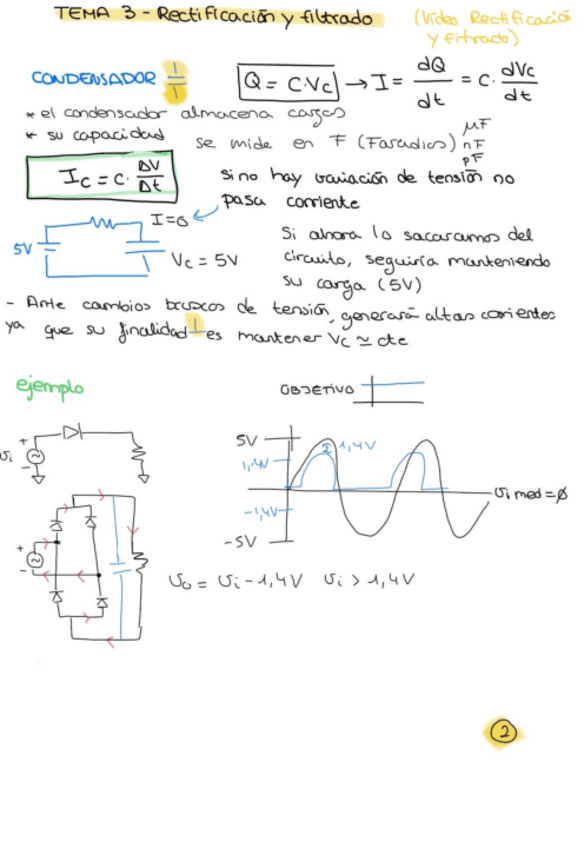 TEMA 3 - Rectificación y filtrado (Vídeo Rectificación
y Filtrado)
CONDENSADOR Q = C·Vc → I = dQ/dt = C· dVc/dt
* el condensador almacena cargas
* su capacidad se mide en F (Faradios) μF
nF
pF
Ic = C· ΔV/Δt si no hay variación de tensión no
pasa corriente
I=0
5V Vc = 5V
Si ahora lo sacaramos del
circuito, seguiría manteniendo
su carga (5V)
- Ante cambios bruscos de tensión, generará altas corrientes
ya que su finalidad es mantener Vc ≃ cte
ejemplo OBJETIVO
5V 1,4V
1,4V
-1,4V
-5V
Ui med = ø
Ui
+
-
+
-
Uo = Ui - 1,4V Ui > 1,4V
2